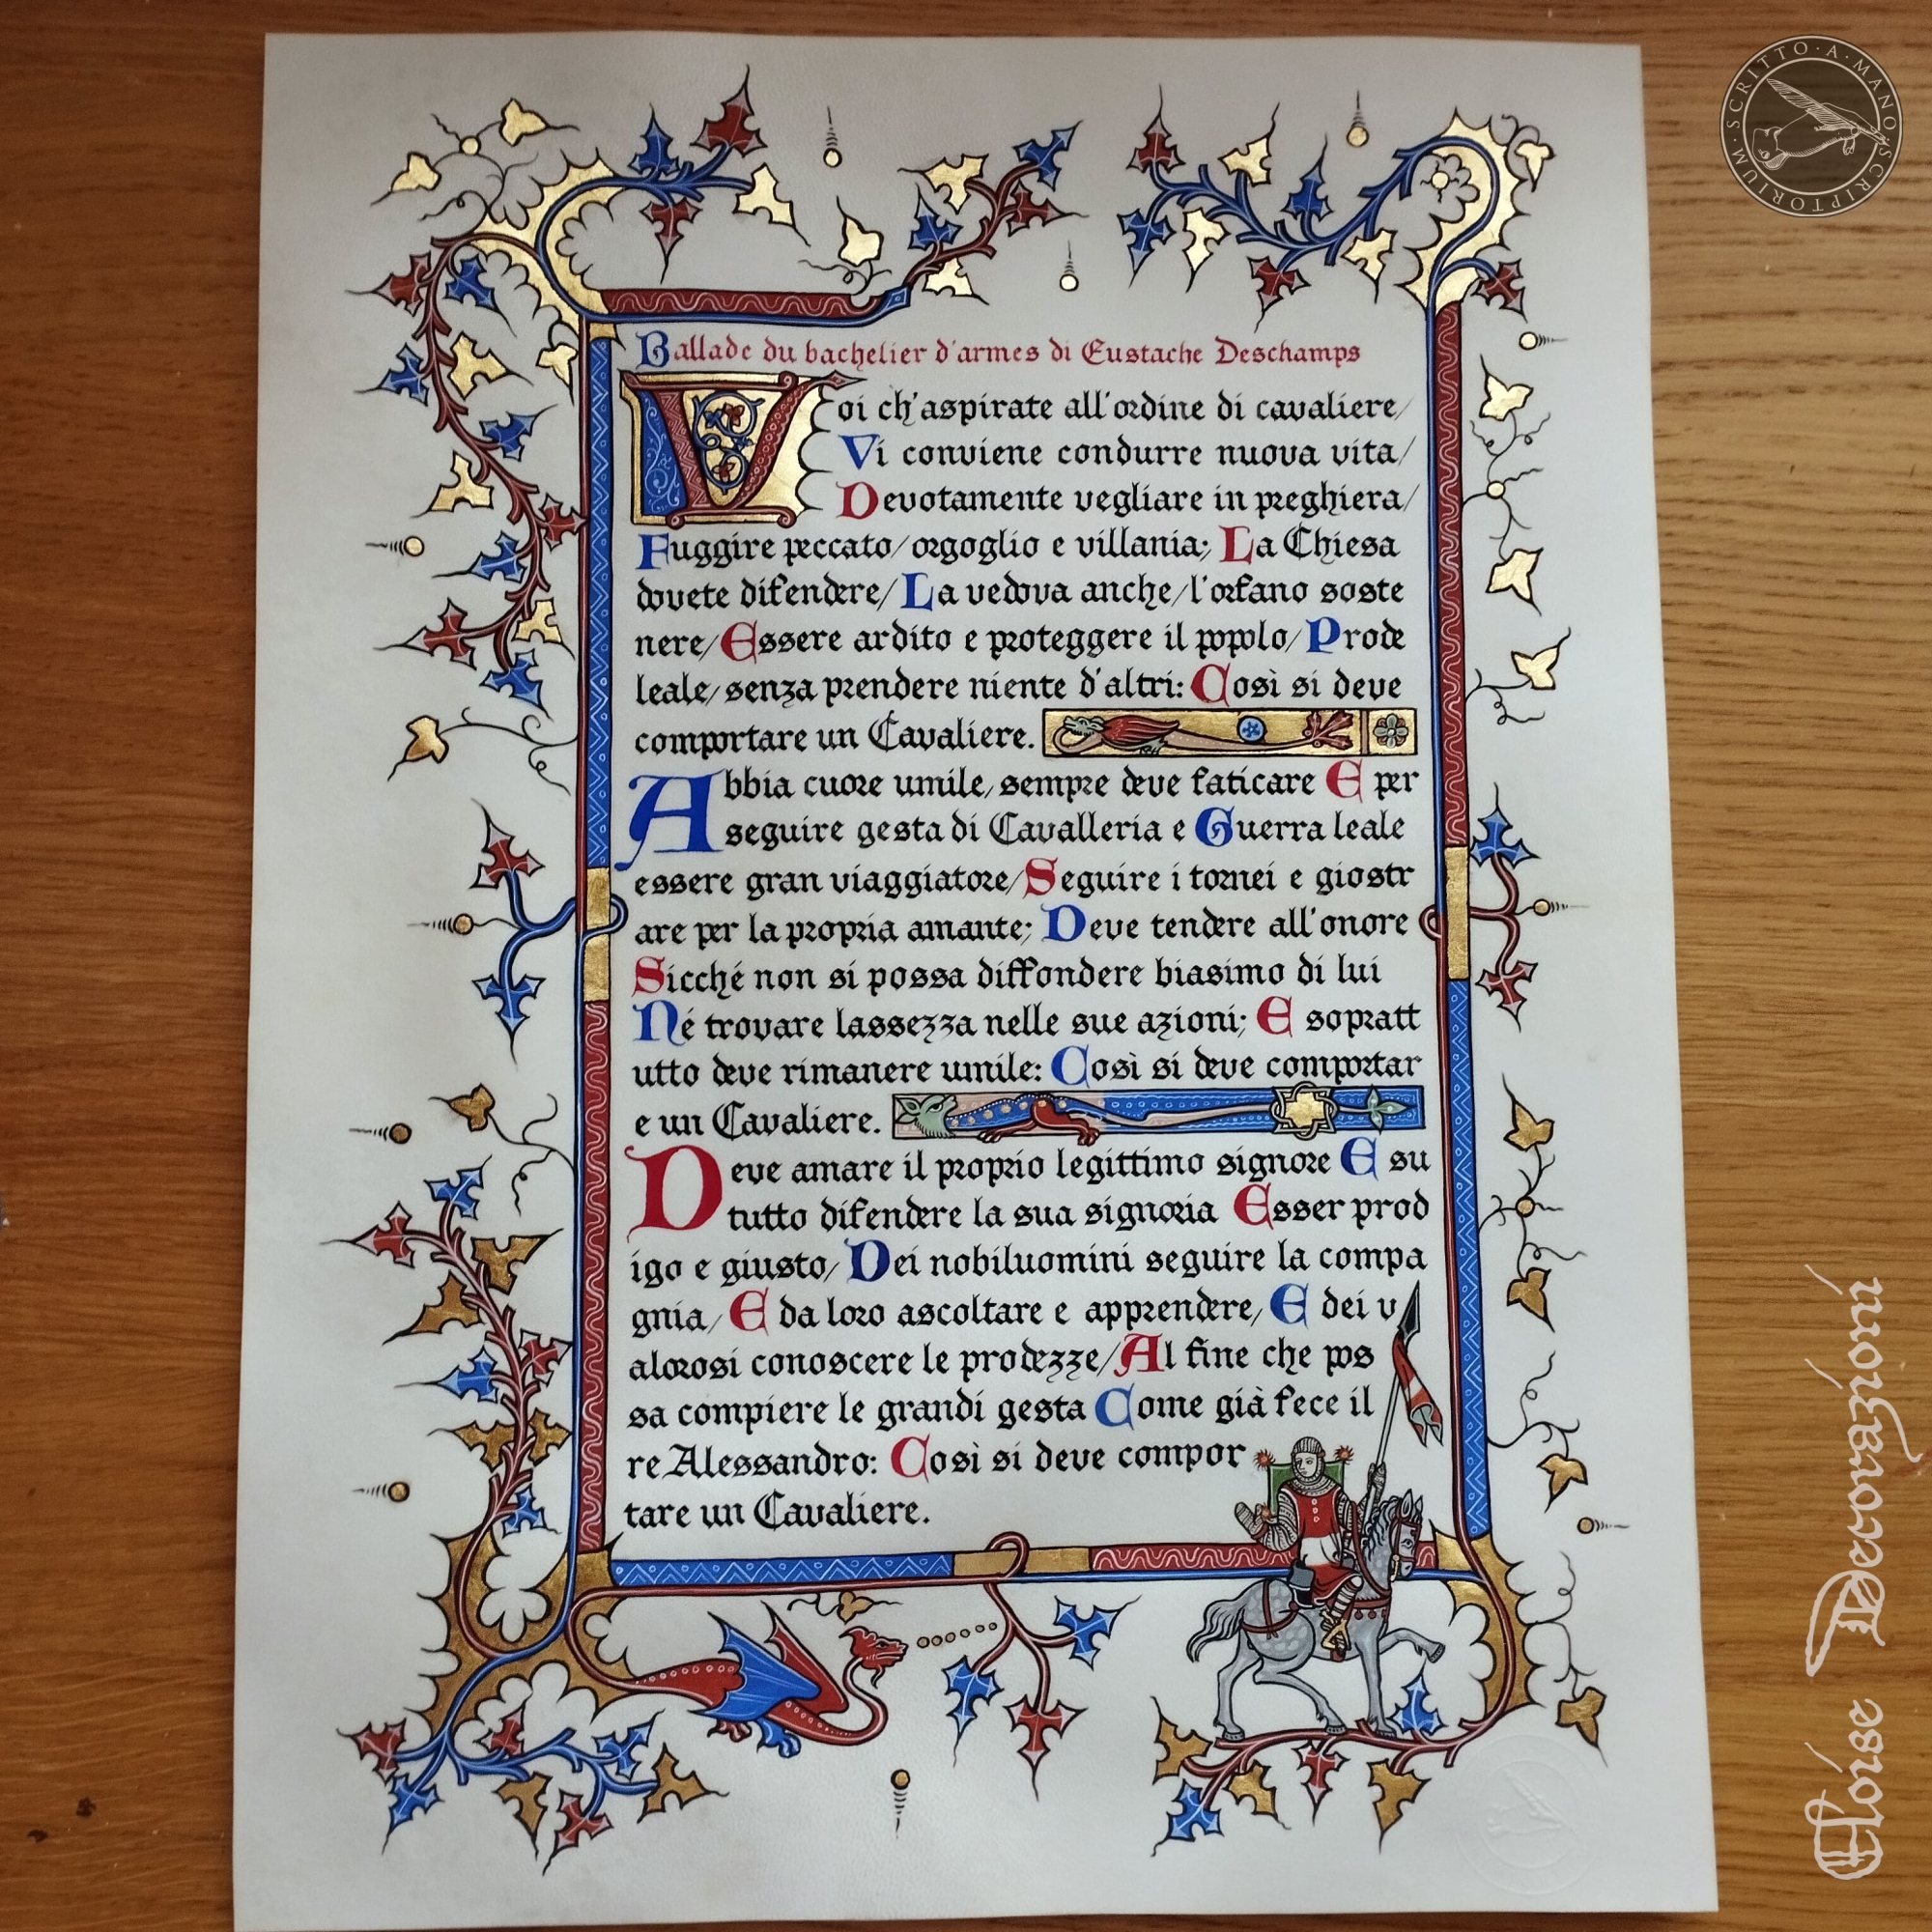 Ballade du bachelier d'armes di Eustache Deschamps
Voi ch'aspirate all'ordine di cavaliere/
Vi conviene condurre nuova vita/
Devotamente vegliare in preghiera/
Fuggire peccato/orgoglio e villania; La Chiesa
dovete difendere/La vedova anche/l'orfano soste
nere/Essere ardito e proteggere il popolo/Prode
leale/senza prendere niente d'altri: Così si deve
comportare un Cavaliere.
Abbia cuore umile/sempre deve faticare E per
seguire gesta di Cavalleria e Guerra leale
essere gran viaggiatore/Seguire i tornei e giostr
are per la propria amante; Deve tendere all'onore
Sicché non si possa diffondere biasimo di lui
Né trovare lassezza nelle sue azioni; E sopratt
utto deve rimanere umile: Così si deve comportar
e un Cavaliere.
Deve amare il proprio legittimo signore E su
tutto difendere la sua signoria Esser prod
igo e giusto/Dei nobiluomini seguire la compa
gnia/E da loro ascoltare e apprendere/E dei v
alorosi conoscere le prodezze/Al fine che pos
sa compiere le grandi gesta Come già fece il
re Alessandro: Così si deve compor
tare un Cavaliere.
SCRITTO·A·MANO·SCRIPTORIUM·
Eloise Decorazioni